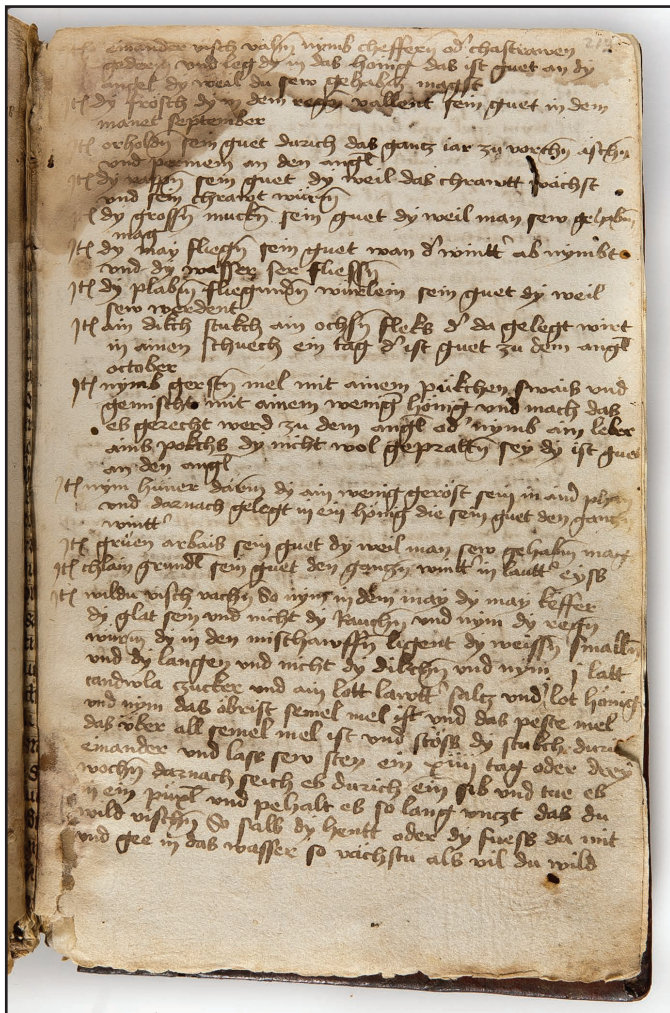 Jtem einander visch vahn nymb cheffern od' chastrawen
gederm vnd leg dy in das hönig das ist guet an dy
angel dy weil du sew gehabm magst
Jtem dy frösch dy in dem regn vallent sein guet in dem
manet september
Jtem orholdn sein guet durich das gantz iar zu vorchn aschn
vnd permem an den angl
Jtem dy rappn sein guet dy weil das chrawtt wachst
vnd sein chrawt würm
Jtem dy grossn muckn sein guet dy weil man sew gehabm
mag
Jtem dy may fliegn sein guet wan d' wintt' ab nymbt
vnd dy wasser ser fliessn
Jtem dy plabm fliegundn würlein sein guet dy weil
sew werdent
Jtem ain dikch stukch ain ochsn fleks d' da gelegt wirt
in ainen schuech ein tag d' ist guet zu dem angl
october
Jtem nymb gerstn mel mit ainem pükchen swais vnd
gemischt mit ainem wenig hönig vnd mach das
es gerecht werd zu dem angl od' nymb ain leber
ains pokchs dy nicht wol gepratn sey dy ist guet
an den angl
Jtem nym hüner darm dy ain wenig geröst sein in aind
vnd darnach gelegt in ein hönig die sein guet den gantzn
wintt'
Jtem grüen arbais sein guet dy weil man sew gehabm mag
Jtem chlain grundl sein guet den gantzn wintt' in lautt' eyss
Jtem wildu visch vachn So nym in dem may dy may keffer
dy glat sein vnd nicht dy Rauchn vnd nym dy regn
würm dy in den misthawffn ligent dy weissn smalln
vnd dy langen vnd nicht dy dikchn vnd nym j latt
candwla zucker vnd ain lott lawtt' saltz vnd j lot hönig
vnd nym das obrist semel mel ist vnd das peste mel
das über all semel mel ist vnd stöss dy stukch durich
einander vnd lass sew sten ein xiiij tag oder drey
wochn darnach seich es durich ein sib vnd tue es
in ein püxl vnd pehalt es so lang vnczt das du
wild vischn So salb dy hentt oder dy fuess da mit
vnd gee in das wasser so vachstu als vil du wild